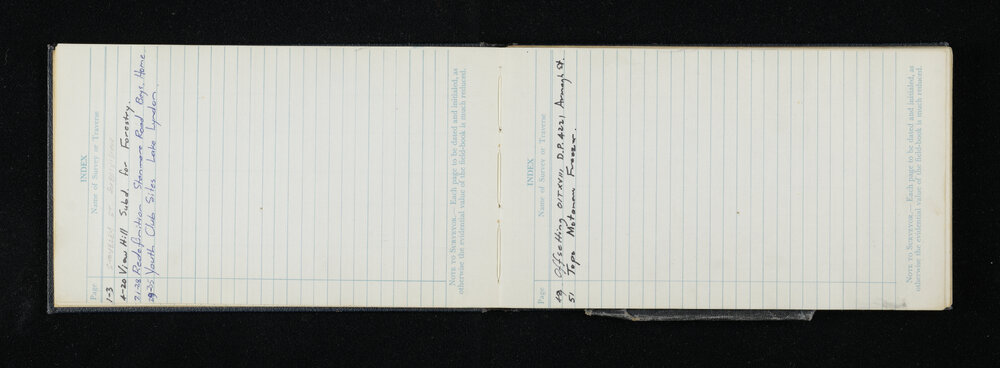 INDEX
Page Name of Survey or Traverse
1-3
4-20 View Hill Subd. for Forestry.
21-28 Redefinition Stanmore Road Boys Home
29-50 Youth Club Sites Lake Lyndon.
NOTE TO SURVEYOR.—Each page to be dated and initialed, as
otherwise the evidential value of the field-book is much reduced.
INDEX
Page Name of Survey or Traverse
Offsetting OIT.XVIII D.P. 4221 Armagh St.
51 Topo Motonau
NOTE TO SURVEYOR.—Each page to be dated and initialed, as
otherwise the evidential value of the field-book is much reduced.